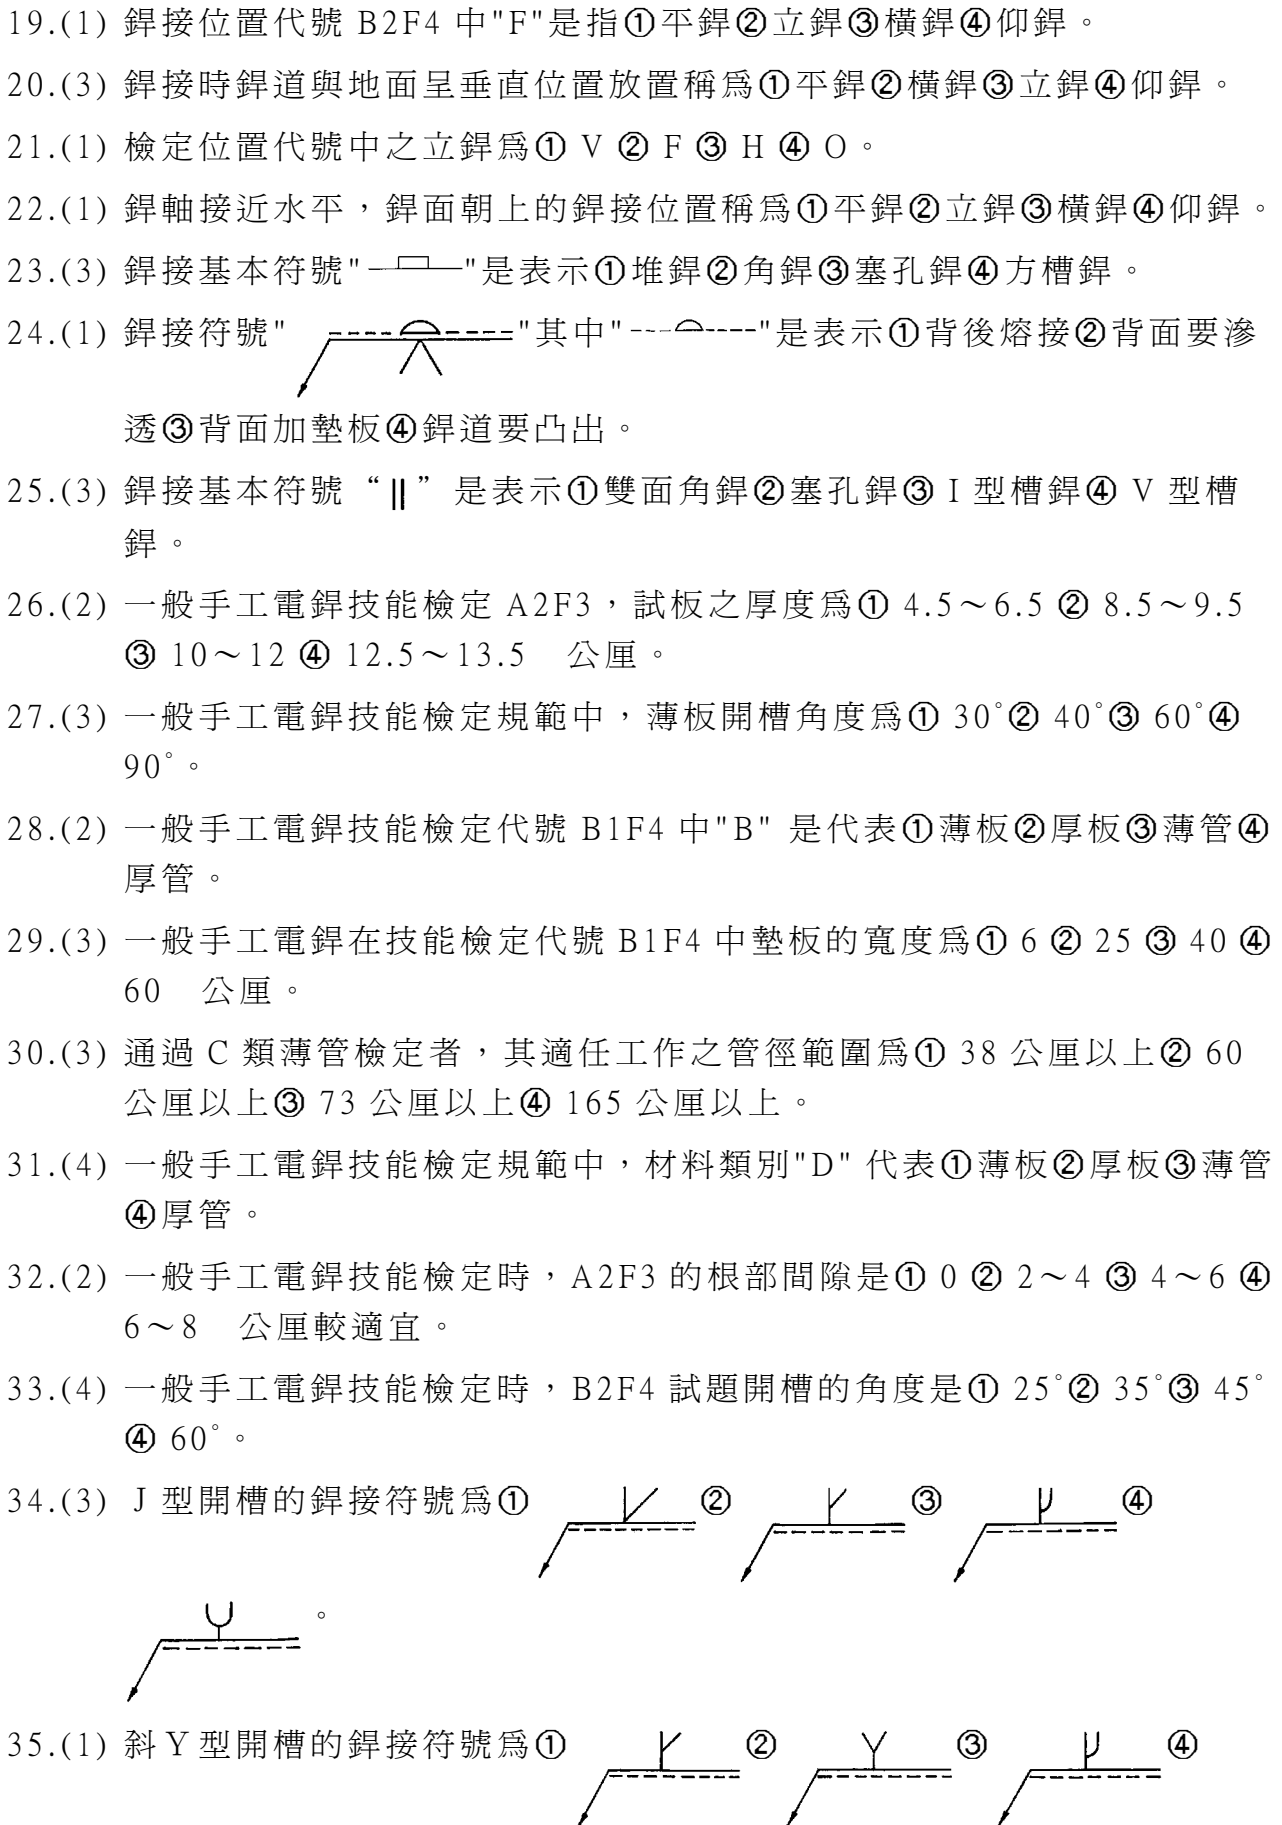 19.(1) 銲接位置代號 B2F4 中"F"是指①平銲②立銲③橫銲④仰銲。
20.(3) 銲接時銲道與地面呈垂直位置放置稱爲①平銲②橫銲③立銲④仰銲。
21.(1) 檢定位置代號中之立銲爲① V ② F ③ H ④ O。
22.(1) 銲軸接近水平，銲面朝上的銲接位置稱爲①平銲②立銲③橫銲④仰銲。
23.(3) 銲接基本符號" "是表示①堆銲②角銲③塞孔銲④方槽銲。
24.(1) 銲接符號" "其中" "是表示①背後熔接②背面要滲
透③背面加墊板④銲道要凸出。
25.(3) 銲接基本符號“||”是表示①雙面角銲②塞孔銲③ I 型槽銲④ V 型槽
銲。
26.(2) 一般手工電銲技能檢定 A2F3，試板之厚度爲① 4.5～6.5 ② 8.5～9.5
③ 10～12 ④ 12.5～13.5 公厘。
27.(3) 一般手工電銲技能檢定規範中，薄板開槽角度爲① 30°② 40°③ 60°④
90°。
28.(2) 一般手工電銲技能檢定代號 B1F4 中"B" 是代表①薄板②厚板③薄管④
厚管。
29.(3) 一般手工電銲在技能檢定代號 B1F4 中墊板的寬度爲① 6 ② 25 ③ 40 ④
60 公厘。
30.(3) 通過 C 類薄管檢定者，其適任工作之管徑範圍爲① 38 公厘以上② 60
公厘以上③ 73 公厘以上④ 165 公厘以上。
31.(4) 一般手工電銲技能檢定規範中，材料類別"D" 代表①薄板②厚板③薄管
④厚管。
32.(2) 一般手工電銲技能檢定時，A2F3 的根部間隙是① 0 ② 2～4 ③ 4～6 ④
6～8 公厘較適宜。
33.(4) 一般手工電銲技能檢定時，B2F4 試題開槽的角度是① 25°② 35°③ 45°
④ 60°。
34.(3) J 型開槽的銲接符號爲① ② ③ ④
。
35.(1) 斜Y型開槽的銲接符號爲① ② ③ ④